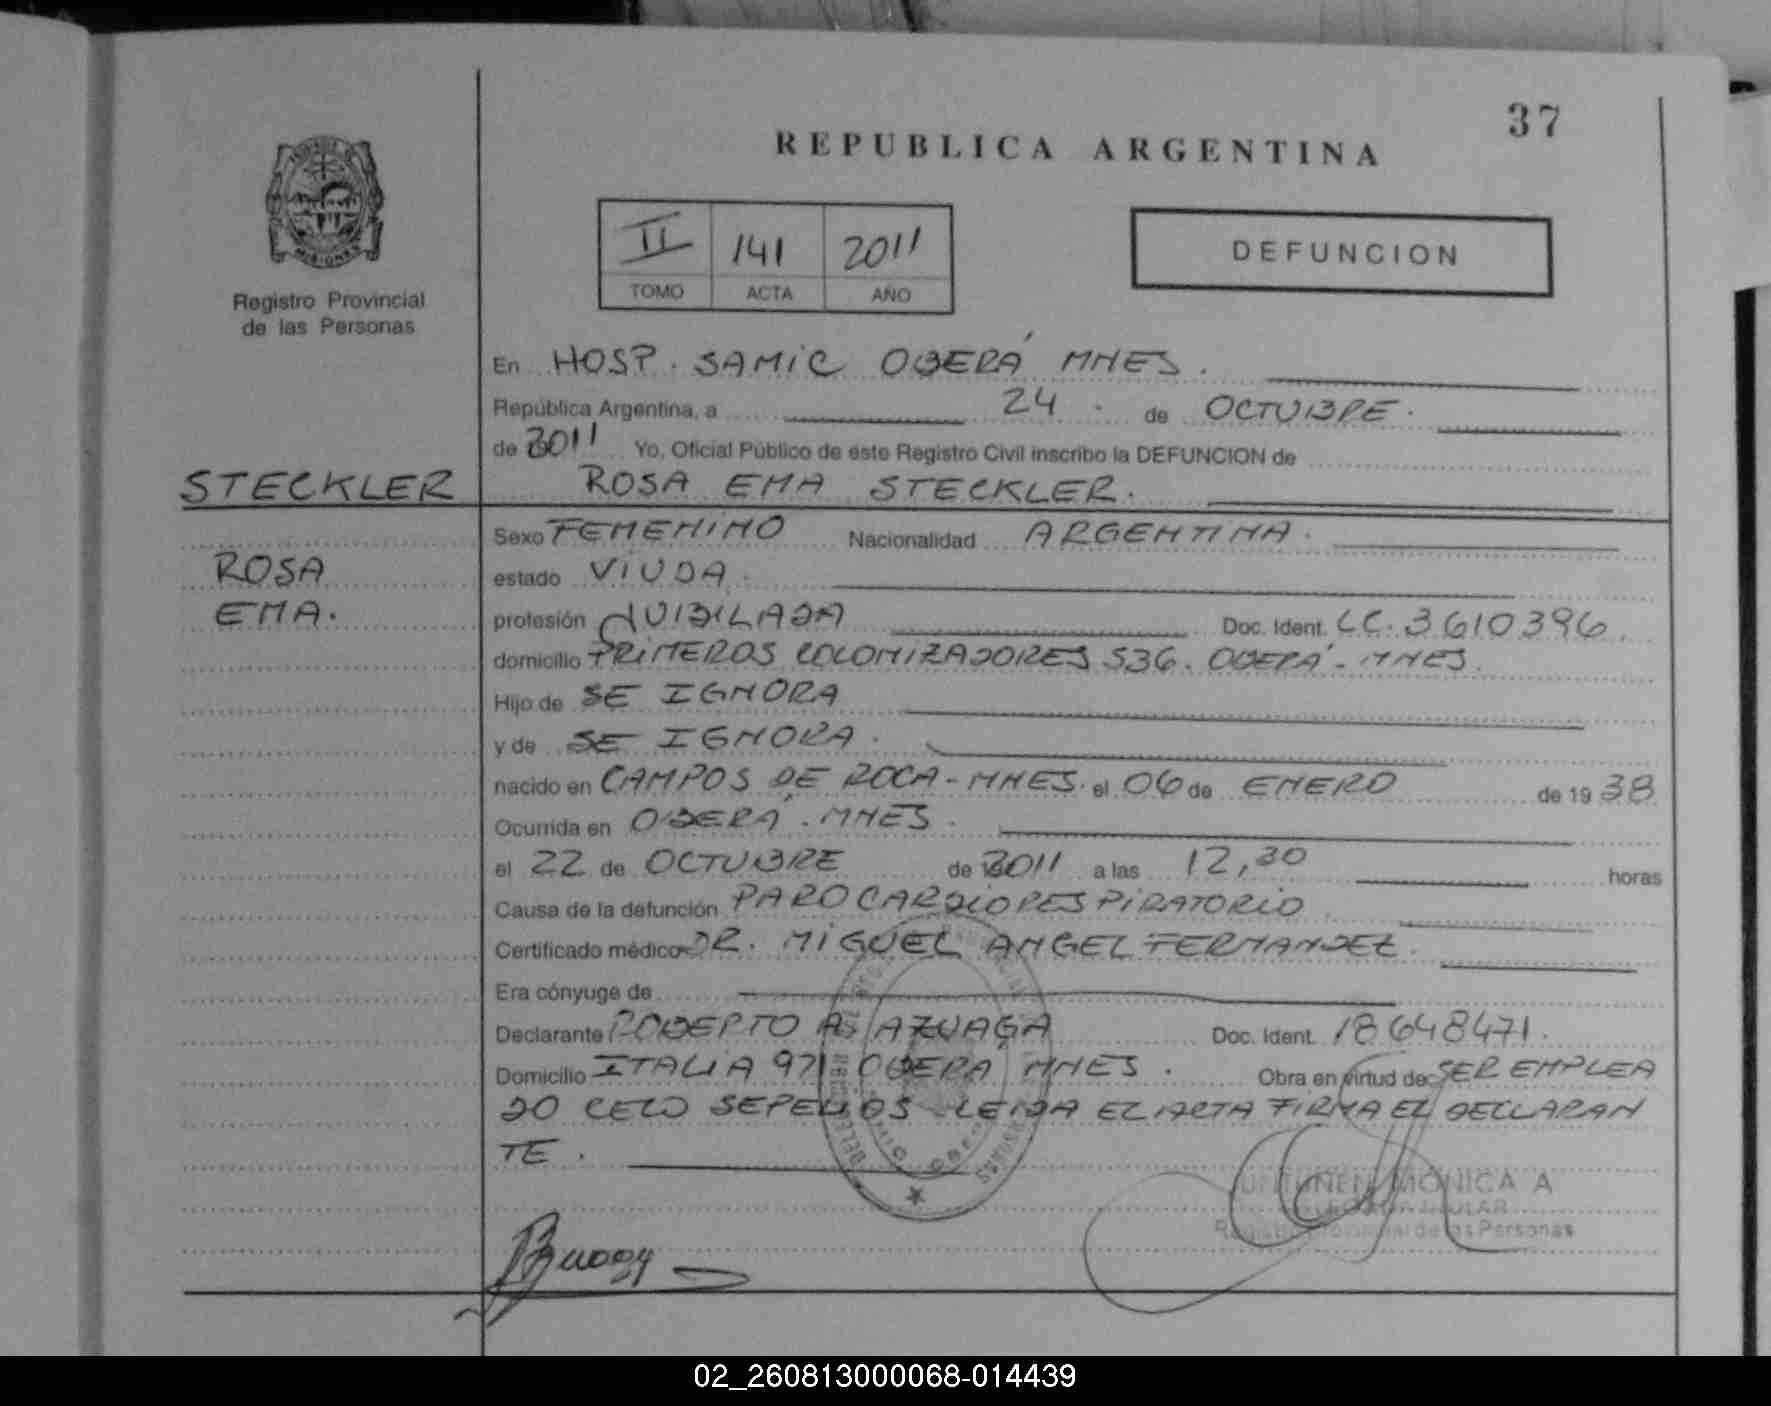 37
REPUBLICA ARGENTINA
II 141 2011
TOMO ACTA AÑO
DEFUNCION
MISIONES
Registro Provincial
de las Personas
En HOSP. SAMIC OBERÁ MNES.
República Argentina, a 24 de OCTUBRE.
de 2011 Yo, Oficial Público de este Registro Civil inscribo la DEFUNCION de
STECKLER ROSA EMA STECKLER.
Sexo FEMENINO Nacionalidad ARGENTINA.
ROSA estado VIUDA.
EMA. profesión JUBILADA Doc. Ident. LC. 3610396.
domicilio PRIMEROS COLONIZADORES 536. OBERÁ - MNES.
Hijo de SE IGNORA
y de SE IGNORA.
nacido en CAMPOS DE ROCA - MNES. el 06 de ENERO de 1938
Ocurrida en OBERÁ. MNES.
el 22 de OCTUBRE de 2011 a las 12,30 horas
Causa de la defunción PARO CARDIORESPIRATORIO
Certificado médico DR. MIGUEL ANGEL FERNANDEZ.
Era cónyuge de
Declarante ROBERTO A. AZUAGA Doc. Ident. 18648471.
Domicilio ITALIA 971 OBERA MNES. Obra en virtud de SER EMPLEA
DO CELO SEPELIOS - LEIDA EL ACTA FIRMA EL DECLARAN
TE.
MONICA A
TITULAR
Registro Provincial de las Personas
02_260813000068-014439